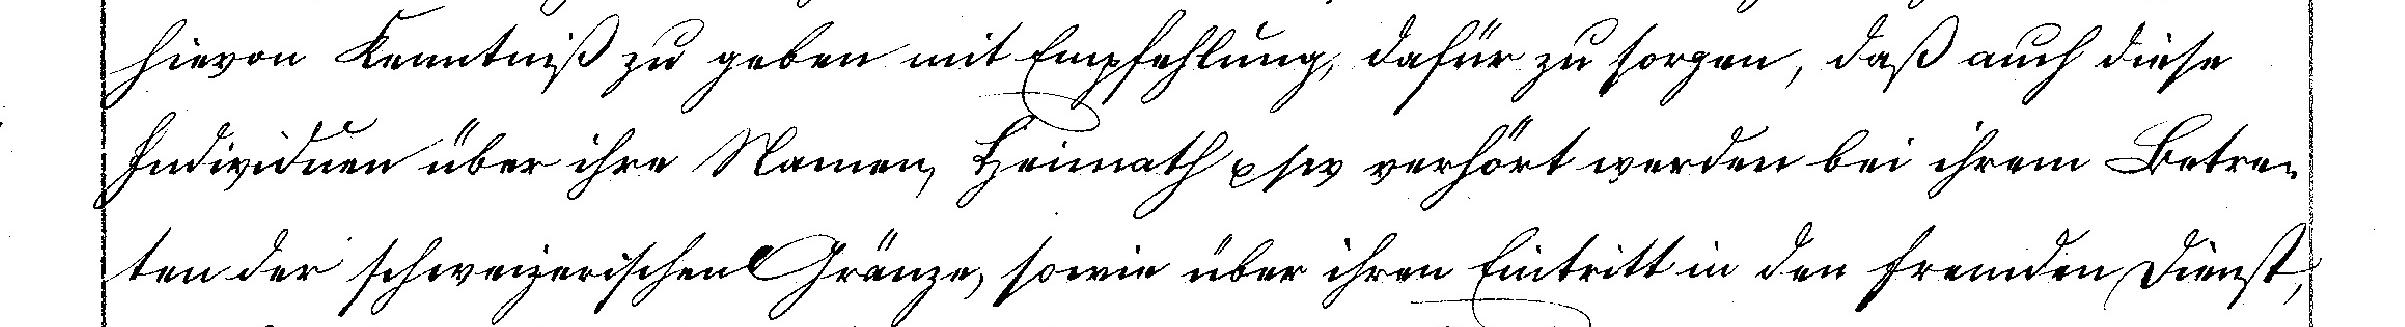 hievon Kenntniß zu geben mit Empfehlung, dafür zu sorgen, daß auch diese
Individuen über ihre Namen, Heimath usw verhört werden bei ihrem Betre-
ten der schweizerischen Gränze, sowie über ihren Eintritt in den fremden Dienst,